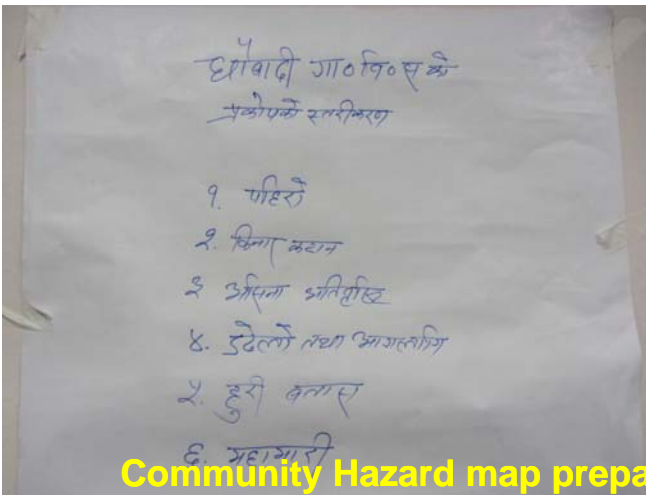 धौवादी गा०वि०स को
प्रकोपको स्तरीकरण
१. पहिरो
२. किनार कटान
३ असिना अतिवृष्टि
४. डढेलो तथा आगलागि
५. हुरी बतास
६. महामारी
Community Hazard map prepa